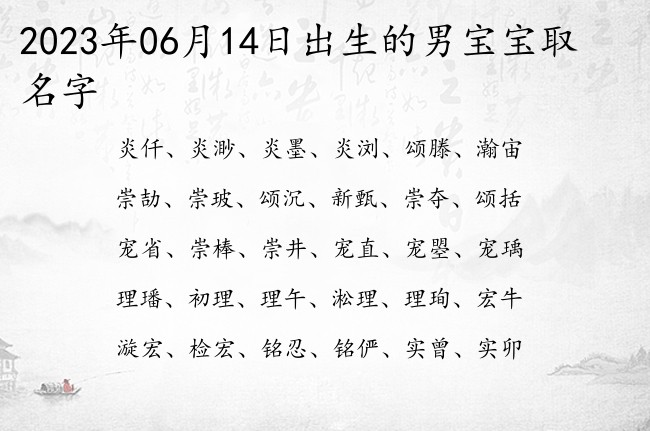 2023年06月14日出生的男宝宝取
名字
炎仟、炎渺、炎墨、炎浏、颂滕、瀚宙
崇劼、崇玻、颂沉、新甄、崇夺、颂括
宠省、崇棒、崇井、宠直、宠曌、宠瑀
理璠、初理、理午、淞理、理珣、宏牛
漩宏、检宏、铭忍、铭俨、实曾、实卯